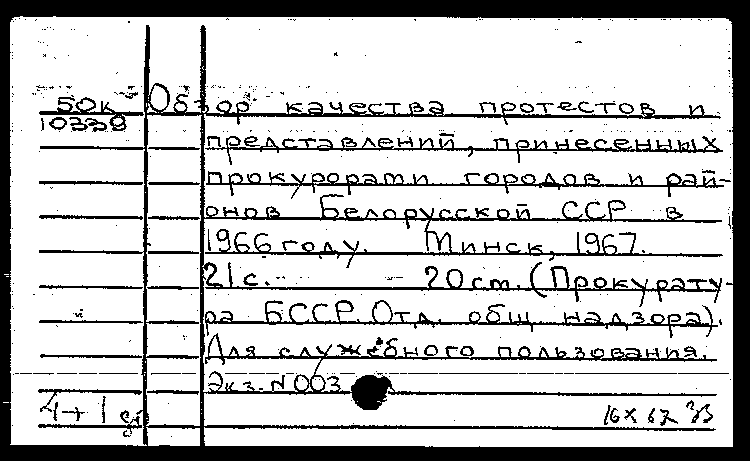 50к Обзор качества протестов и
10339
представлений, принесенных
прокурорами городов и рай-
онов Белорусской ССР в
1966 году. Минск, 1967.
21 с. 20 см. (Прокурату-
ра БССР. Отд. общ. надзора).
Для служебного пользования.
Экз. №003
4+1